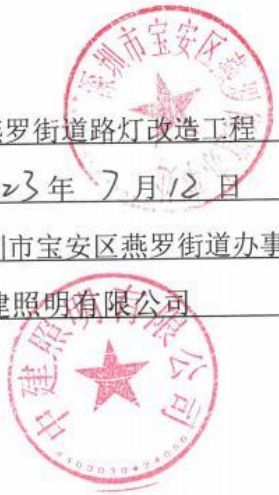 深圳市宝安区燕罗
燕罗街道路灯改造工程
23年 7月12日
圳市宝安区燕罗街道办事
建照明有限公司
中建照明有限公司